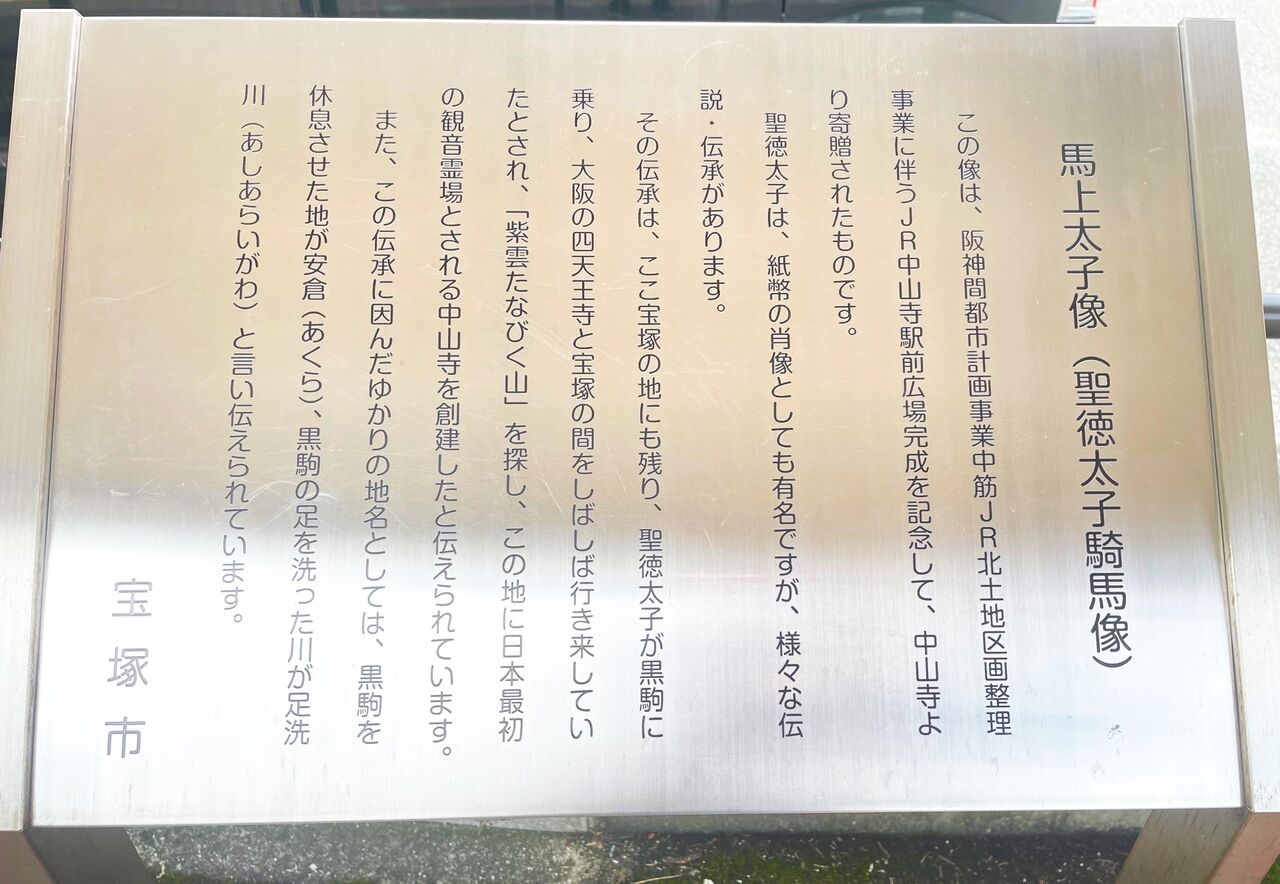 馬上太子像（聖徳太子騎馬像）
この像は、阪神間都市計画事業中筋JR北土地区画整理
事業に伴うJR中山寺駅前広場完成を記念して、中山寺よ
り寄贈されたものです。
聖徳太子は、紙幣の肖像としても有名ですが、様々な伝
説・伝承があります。
その伝承は、ここ宝塚の地にも残り、聖徳太子が黒駒に
乗り、大阪の四天王寺と宝塚の間をしばしば行き来してい
たとされ、「紫雲たなびく山」を探し、この地に日本最初
の観音霊場とされる中山寺を創建したと伝えられています。
また、この伝承に因んだゆかりの地名としては、黒駒を
休息させた地が安倉（あくら）、黒駒の足を洗った川が足洗
川（あしあらいがわ）と言い伝えられています。
宝塚市